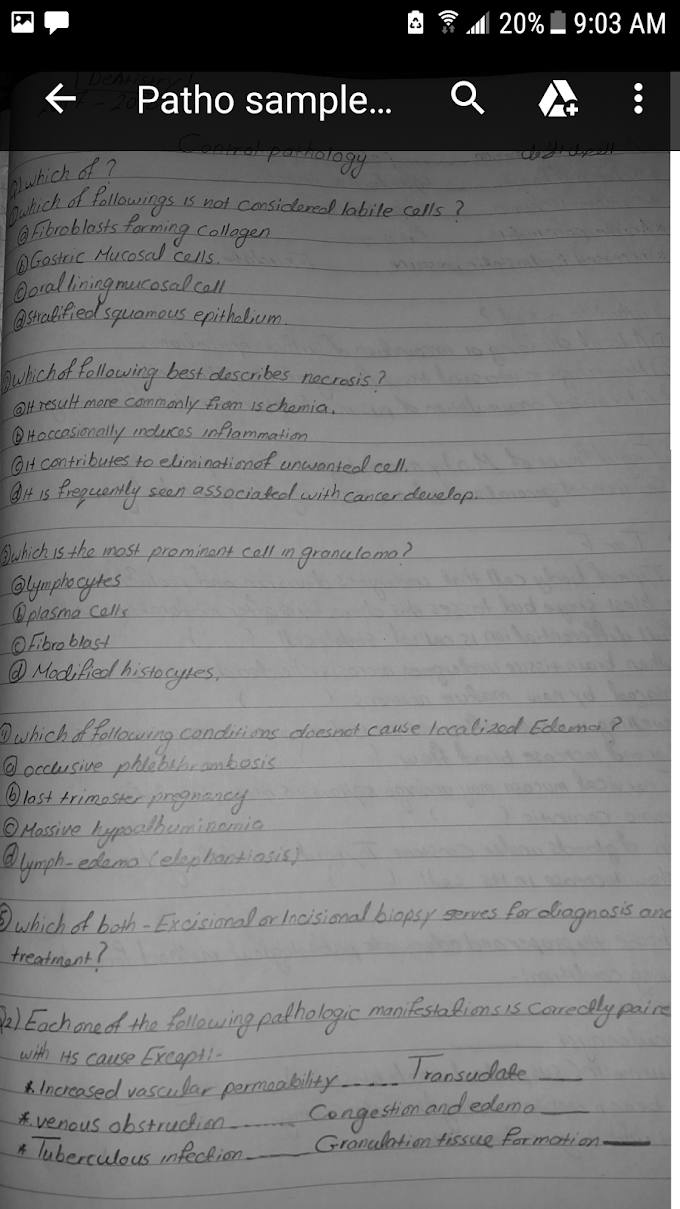 20% 9:03 AM
Patho sample...
Dentistry
Control pathology
Q1) which of ?
① which of followings is not considered labile cells ?
ⓐ Fibroblasts forming collagen
ⓑ Gastric Mucosal cells.
ⓒ oral lining mucosal cell
ⓓ stratified squamous epithelium.
② which of following best describes necrosis ?
ⓐ It result more commonly from ischemia.
ⓑ It occasionally induces inflammation
ⓒ it contributes to elimination of unwanted cell.
ⓓ It is frequently seen associated with cancer develop.
③ which is the most prominent cell in granuloma ?
ⓐ lymphocytes
ⓑ plasma cells
ⓒ Fibroblast
ⓓ Modified histocytes.
④ which of following conditions doesnot cause localized Edema ?
ⓐ occlusive phlebthrambosis
ⓑ last trimester pregnancy
ⓒ Massive hypoalbuminemia
ⓓ lymph-edema (elephantiasis)
⑤ which of both - Excisional or Incisional biopsy serves for diagnosis and
treatment ?
Q2) Each one of the following pathologic manifestations is correctly paire
with its cause Except:-
* Increased vascular permeability ...... Transudate
* venous obstruction ........ Congestion and edema
* Tuberculous infection ........ Granulation tissue formation